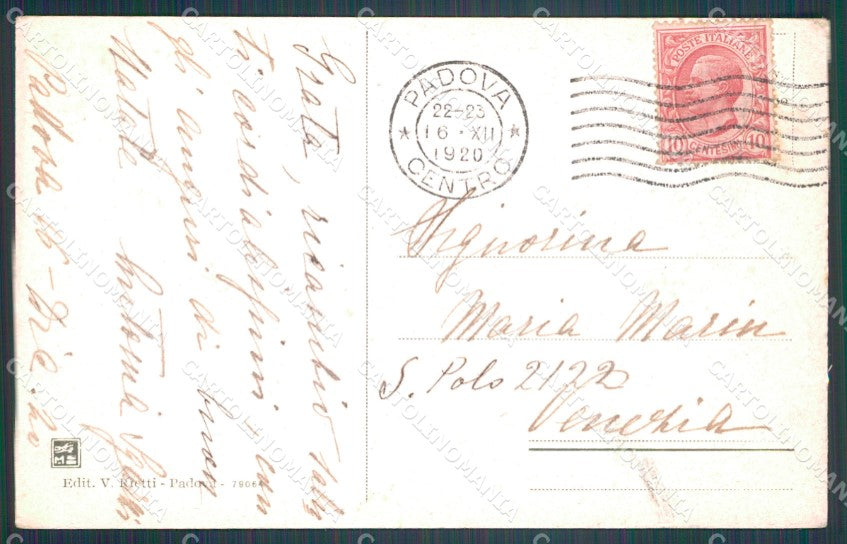 Grata, ricambio
cordialissimi
gli auguri di buon
Natale
Padova 16 - Dic. 20
PADOVA
22-23
16 · XII
1920
CENTRO
POSTE ITALIANE
10 CENTESIMI 10
Signorina
Maria Marin
S. Polo 2122
Venezia
Edit. V. Rietti - Padova - 7906
CARTOLINOMANIA